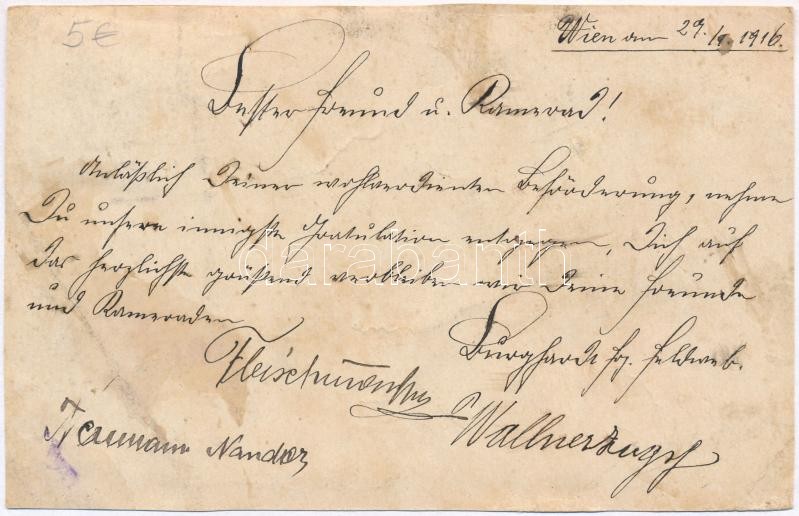 5€
Wien am 29./9. 1916.
Bester Freund u. Kamerad!
Anläßlich Deiner wohlverdienten Beförderung, nehme
Du unsere innigste Gratulation entgegen, Dich auf
das herzlichste grüßend verbleiben wir Deine Freunde
und Kameraden
darabanth
Burghardt Feldweb.
Nandor